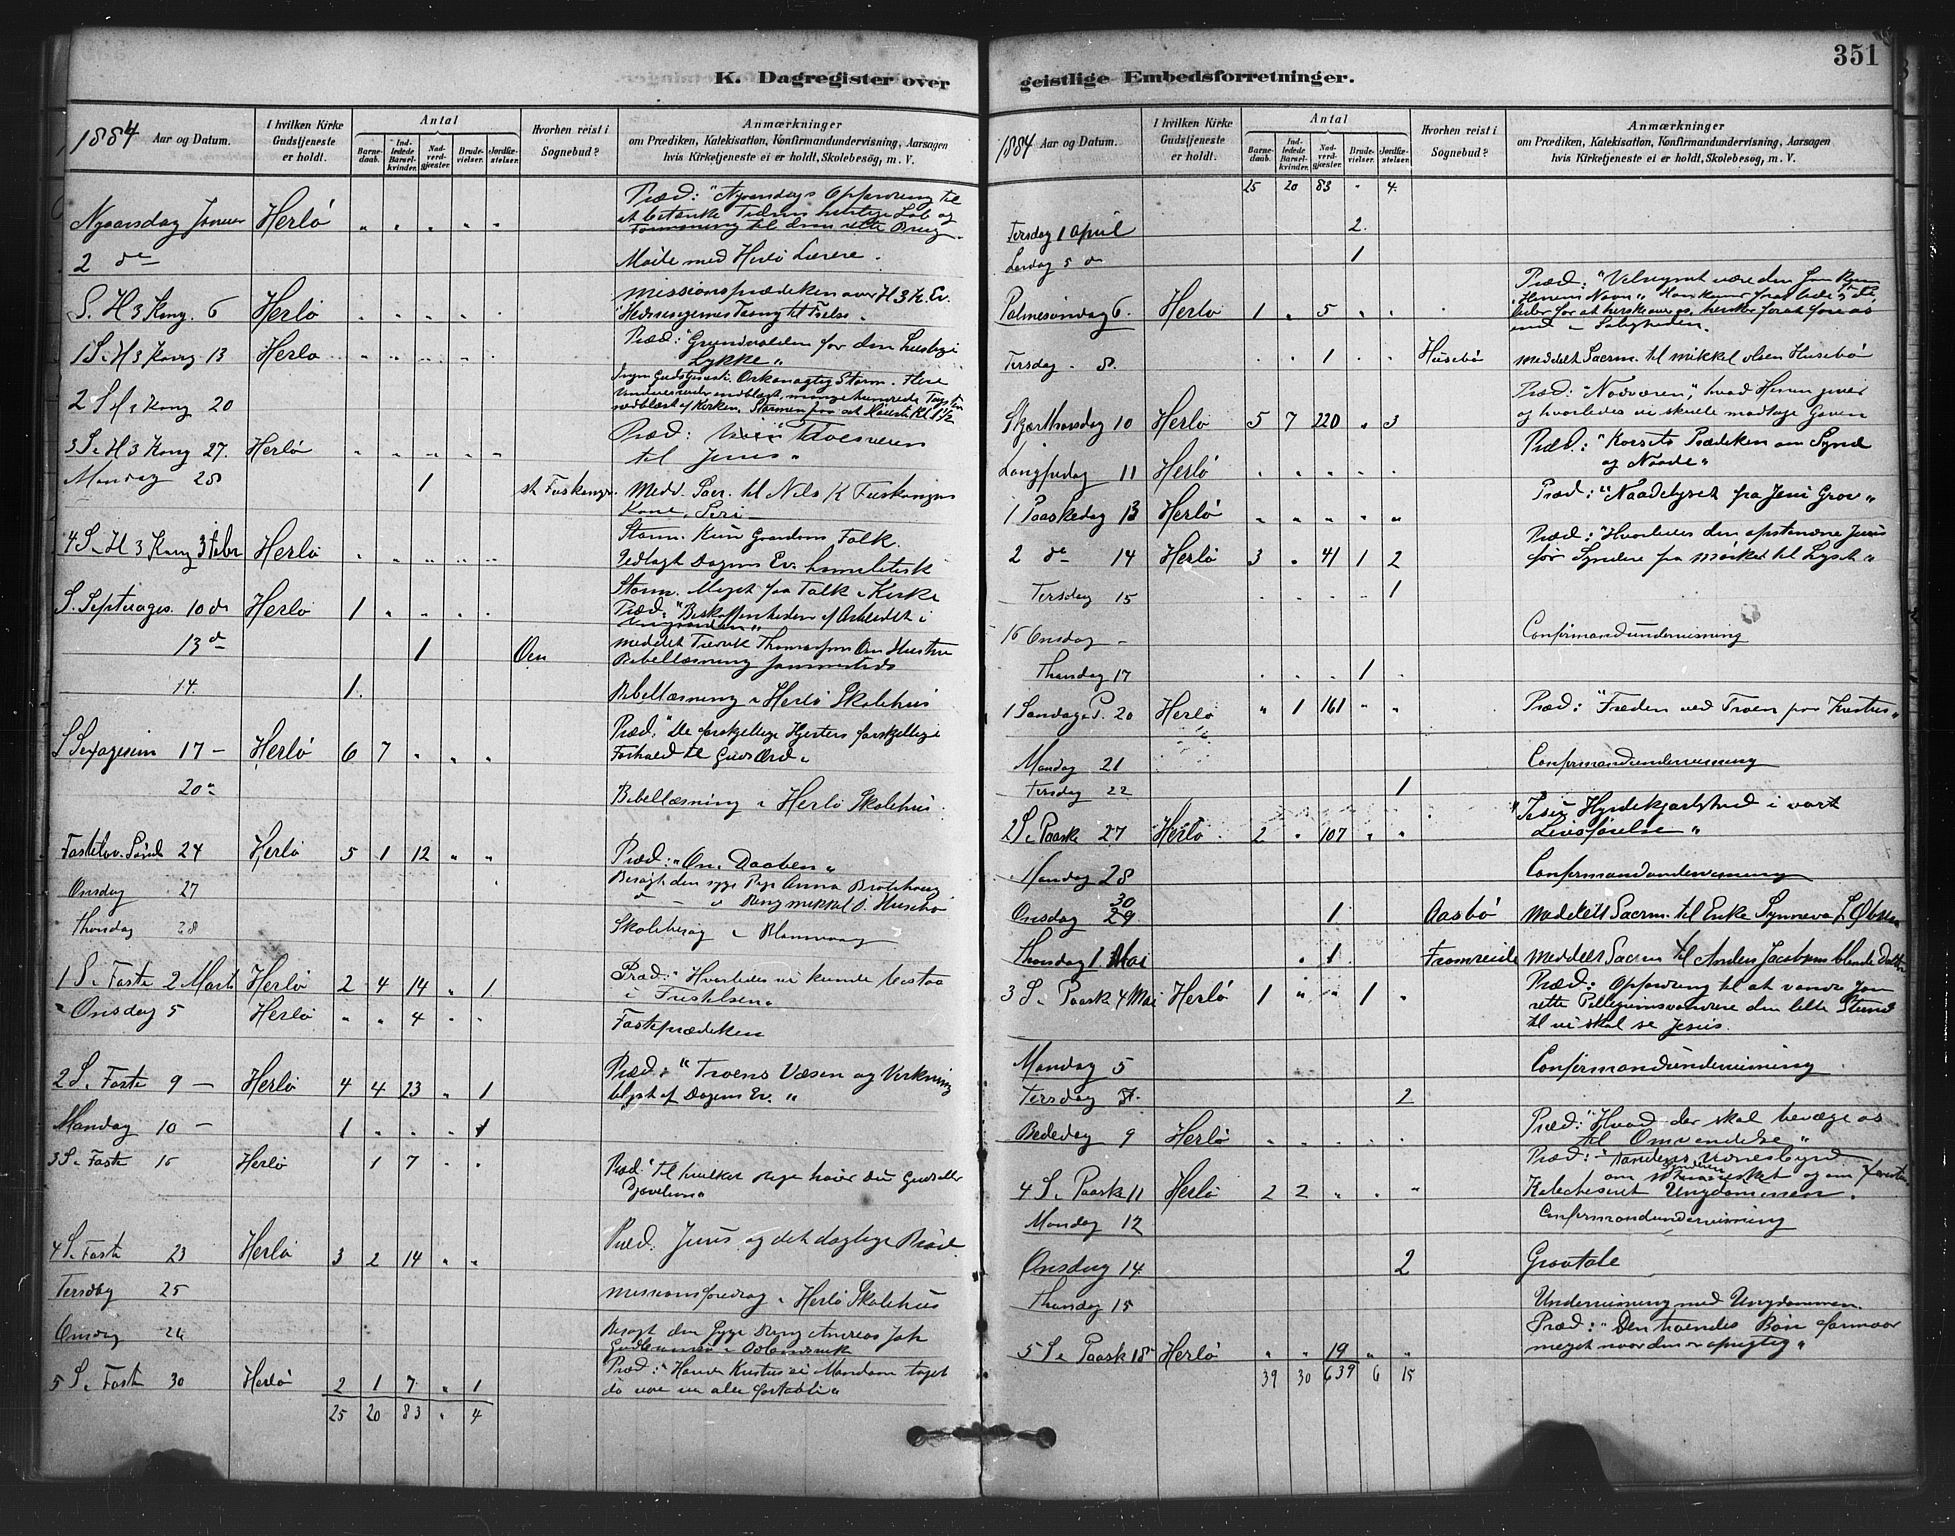 K. Dagregister over
1884 Aar og Datum.
I hvilken Kirke Gudstjeneste er holdt.
Antal
Barnedaab.
Indledede Barselkvinder.
Nadverdgjester.
Brudevielser.
Jordfæstelser.
Hvorhen reist i Sognebud?
Anmærkninger
om Prædiken, Katekisation, Konfirmandundervisning, Aarsagen
hvis Kirketjeneste ei er holdt, Skolebesøg, m. V.
Nyaarsdag Januar Herlø " " " " " Præd: "Nyaarsdags Opfordring til
at betænke Tidens hurtige Løb og
Formaning til dens rette Brug
2 do Møde med Herlø Lærere.
S. H 3 Kong. 6 Herlø " " " " " Missionsprædiken over H 3 K. Ev.
Hedningernes Trang til Frelse.
1 S. H 3 Kong 13 Herlø " " " " " Præd: "Grundvolden for den huslige
Lykke"
2 S H 3 Kong 20 Ingen Gudstjeneste. Orkanagtig Storm. Flere
nedblæst, mange hundrede Tagsten
nedblæst af Kirken. Stormen paa det Høieste Kl 1 1/2
3 S. H 3 Kong 27. Herlø " " " " " Præd: Troesveien
til Jesus"
Mandag 28 1 Medd. Sacr. til Nils K
Kone, Seri
4 S. H 3 Kong 3 Febr Herlø " " " " " Storm. Kun Gaardens Folk.
Udlagt Dagens Ev. homeletisk
S. Septuages. 10 do Herlø 1 " " " " Storm. Meget faa Folk i Kirke
Præd. "Beskaffenheden af Arbeidet i
Vingaarden"
13 d 1 Oen Hustru
Bibellæsning sammesteds
14. 1. Bibellæsning i Herlø Skolehus
S Sexagesim 17 - Herlø 6 7 " " " Præd. "De forskjellige Hjerters forskjellige
Forhold til Guds Ord"
20 do Bibellæsning i Herlø Skolehus
Fastelav. Sønd 24 Herlø 5 1 12 " " Præd: "Om Daaben"
Onsdag 27 Besøgt den syge Pige Anna
Mikkel O. Husebø
Thorsdag 28 Skolebesøg i Blomvaag
1 S. Faste 2 Marts Herlø 2 4 14 " 1 Præd: "Hvorledes vi kunde bestaa
i Fristelsen"
" Onsdag 5 Herlø " " 4 " " Fasteprædiken
2 S. Faste 9 - Herlø 4 4 23 " 1 Præd: "Troens Væsen og Virkning
belyst af Dagens Ev."
Mandag 10 - 1 " " " 1
3 S. Faste 16 Herlø 1 7 " " Præd: "Til hvilket Rige hører du Guds eller
Djævelens"
4 S. Faste 23 Herlø 3 2 14 " " Præd: Jesus og det daglige Brød
Tirsdag 25 Missionsforedrag i Herlø Skolehus
Onsdag 26 Besøgt den syge Dreng Andreas
5 S. Faste 30 Herlø 2 1 7 " 1 Præd: "Havde Kristus ei Manddom taget
da vare vi alle fortabte"
25 20 83 " 4
351
geistlige Embedsforretninger.
1884 Aar og Datum.
I hvilken Kirke Gudstjeneste er holdt.
Antal
Barnedaab.
Indledede Barselkvinder.
Nadverdgjester.
Brudevielser.
Jordfæstelser.
Hvorhen reist i Sognebud?
Anmærkninger
om Prædiken, Katekisation, Konfirmandundervisning, Aarsagen
hvis Kirketjeneste ei er holdt, Skolebesøg, m. V.
25 20 83 " 4.
Tirsdag 1 April 2.
Lørdag 5 do 1
Palmesøndag 6. Herlø 1 " 5 " " Præd: "Velsignet være den som kommer
i Herrens Navn"
ind i Saligheden.
Tirsdag - 8. " " 1 " " Husebø Meddelt Sacrm. til Mikkel Olsen Husebø
Skjærthorsdag 10 Herlø 5 7 220 " 3 Præd: "Nadveren", hvad Herren giver
og hvorledes vi skulle modtage Gaven
Langfredag 11 Herlø " " " " " Præd.: "Korsets Prædiken om Synd
og Naade"
1 Paaskedag 13 Herlø " " " " " Præd: "Naadelyset fra Jesu Grav"
2 do 14 Herlø 3 " 41 1 2 Præd: "Hvorledes den opstandne Jesus
fører Syndere fra Mørket til Lyset"
Tirsdag 15 " " " " 1
16 Onsdag - Confirmandundervisning
Thorsdag 17 " " " 1 "
1 Søndag e. P. 20 Herlø " 1 161 " " Præd: "Freden ved Troen paa Kristus"
Mandag 21 Confirmandundervisning
Tirsdag 22 1
2 S. e Paaske 27 Herlø 2 " 107 " " "Jesu Hyrdekjærlighed i vort
Livsførelse"
Mandag 28 Confirmandundervisning
Onsdag 29 30 1 Aasbø Meddelt Sacrm. til Enke Synneva
Thorsdag 1 Mai " 1 Fromreide Meddelt Sacrm til Anders Jacobsens blinde Datter
3 S. e Paask 4 Mai Herlø 1 " " 1 " Præd: Opfordring til at vandre som
rette Pillegrimsvandrere den lille Stund
til vi skal se Jesus.
Mandag 5 Confirmandundervisning
Tirsdag 2
Bededag 9 Herlø " " " " " Præd: "Hvad der skal bevæge os
til Omvendelse"
4 S. e Paask 11 Herlø 2 2 " " " Præd: "Aandens Vidnesbyrd
om Synden
Katechiseret Ungdommen.
Mandag 12 Confirmandundervisning
Onsdag 14 2 Gravtale
Thorsdag 15 Undervisning med Ungdommen.
5 S. e Paask 18 Herlø " " 19 " " Præd: "Den troendes Bøn formaar
meget naar den er oprigtig"
39 30 639 6 15